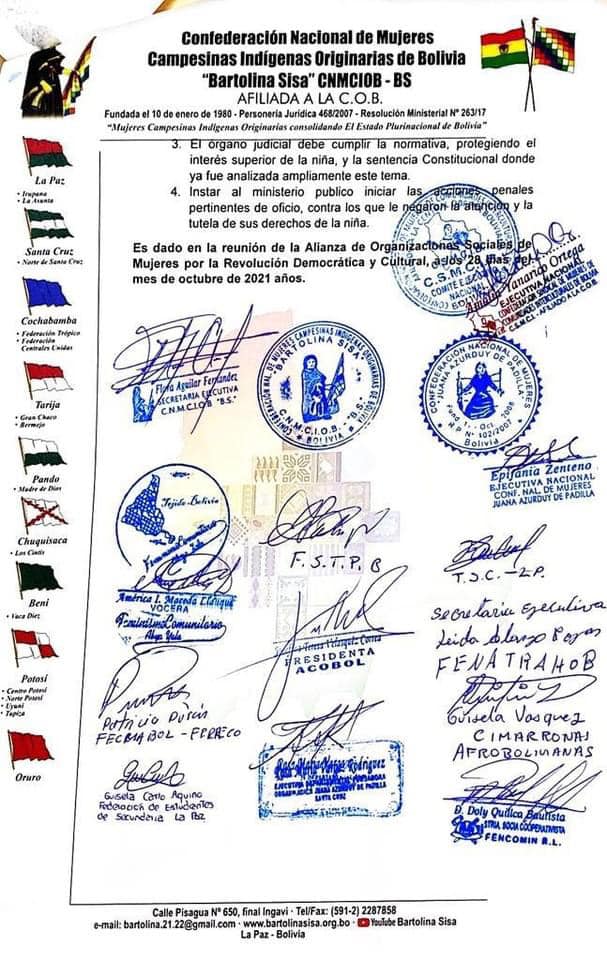 Confederación Nacional de Mujeres
Campesinas Indígenas Originarias de Bolivia
"Bartolina Sisa" CNMCIOB - BS
AFILIADA A LA C.O.B.
Fundada el 10 de enero de 1980 - Personería Jurídica 468/2007 - Resolución Ministerial Nº 263/17
"Mujeres Campesinas Indígenas Originarias consolidando El Estado Plurinacional de Bolivia"
3. El órgano judicial debe cumplir la normativa, protegiendo el
interés superior de la niña, y la sentencia Constitucional donde
ya fue analizada ampliamente este tema.
4. Instar al ministerio publico iniciar las acciones penales
pertinentes de oficio, contra los que le negaron la atención y la
tutela de sus derechos de la niña.
Es dado en la reunión de la Alianza de Organizaciones Sociales de
Mujeres por la Revolución Democrática y Cultural, a los 28 días del
mes de octubre de 2021 años.
La Paz
• Irupana
• La Asunta
Santa Cruz
• Norte de Santa Cruz
Cochabamba
• Federación Trópico
• Federación
Centrales Unidas
Tarija
• Gran Chaco
• Bermejo
Pando
• Madre de Dios
Chuquisaca
• Los Cintis
Beni
• Vaca Diez
Potosí
• Centro Potosí
• Norte Potosí
• Uyuni
• Tupiza
Oruro
C.S.M.C.I.B.
COMITE EJECUTIVO
NACIONAL
BOLIVIA
Yanarico Ortega
EJECUTIVA NACIONAL
Flora Aguilar Fernandez
SECRETARIA EJECUTIVA
C.N.M.C.I.O.B "B.S."
CONFEDERACIÓN NAL. DE MUJERES CAMPESINAS INDIGENAS ORIGINARIAS DE BOLIVIA
BARTOLINA SISA
C.N.M.C.I.O.B. - "B.S."
BOLIVIA
CONFEDERACIÓN NACIONAL DE MUJERES
"JUANA AZURDUY DE PADILLA"
Bolivia
Epifania Zenteno
EJECUTIVA NACIONAL
CONF. NAL. DE MUJERES
JUANA AZURDUY DE PADILLA
Tejido Bolivia
Feminismo Comunitario
América I. Maceda Llanque
VOCERA
Feminismo Comunitario
Abya Yala
F.S.T.P.B
T.S.C. - L.P.
PRESIDENTA
ACOBOL
Secretaria Ejecutiva
FENATRAHOB
Patricia Durán
Guisela Vasquez
CIMARRONAS
AFROBOLIVIANAS
Federación de Estudiantes
de Secundaria La Paz
JUANA AZURDUY DE PADILLA
SANTA CRUZ
D. Doly Quilica Bautista
STRIA. SOCIA COOPERATIVISTA
FENCOMIN R.L.
Calle Pisagua Nº 650, final Ingavi · Tel/Fax: (591-2) 2287858
e-mail: bartolina.21.22@gmail.com · www.bartolinasisa.org.bo · YouTube Bartolina Sisa
La Paz - Bolivia